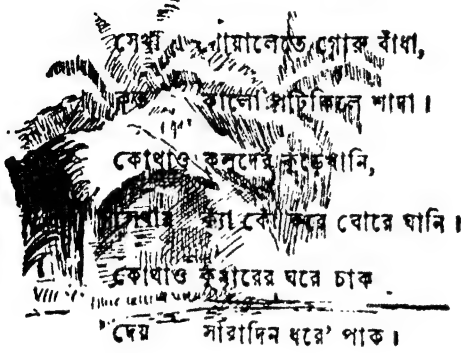 সেথা গোয়ালেতে গোরু বাঁধা,
কালো পাটকিলে শাদা।
কোথাও কলুদের কুঁড়েখানি,
সেথায় ক্যাঁ কোঁ করে ঘোরে ঘানি।
কোথাও কুমারের ঘরে চাক
দেয় সারাদিন ধরে' পাক।